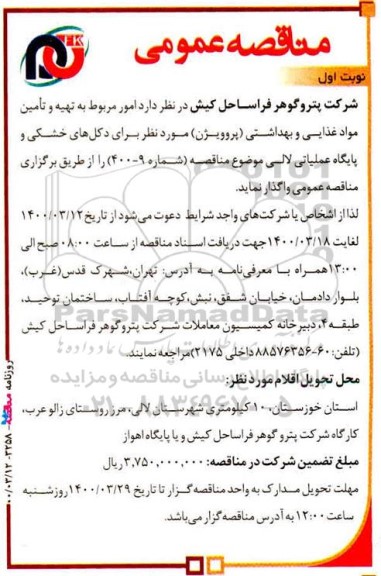 مناقصه عمومی
FK
نوبت اول
شرکت پتروگوهر فراساحل کیش در نظر دارد امور مربوط به تهیه و تأمین
مواد غذایی و بهداشتی (پروویژن) مورد نظر برای دکل‌های خشکی و
پایگاه عملیاتی لالی موضوع مناقصه (شماره ۹-۴۰۰) را از طریق برگزاری
مناقصه عمومی واگذار نماید.
لذا از اشخاص یا شرکت‌های واجد شرایط دعوت می‌شود از تاریخ ۱۴۰۰/۰۳/۱۲
لغایت ۱۴۰۰/۰۳/۱۸ جهت دریافت اسناد مناقصه از ساعت ۰۸:۰۰ صبح الی
۱۳:۰۰ همراه با معرفی‌نامه به آدرس: تهران، شهرک قدس (غرب)،
بلوار دادمان، خیابان شفق، نبش کوچه آفتاب، ساختمان توحید،
طبقه ۴، دبیرخانه کمیسیون معاملات شرکت پتروگوهر فراساحل کیش
(تلفن: ۶۰-۸۸۵۷۶۳۵۶ داخلی ۲۱۷۵) مراجعه نمایند.
محل تحویل اقلام مورد نظر:
استان خوزستان، ۱۰ کیلومتری شهرستان لالی، مرز روستای زالو عرب،
کارگاه شرکت پتروگوهر فراساحل کیش و یا پایگاه اهواز
مبلغ تضمین شرکت در مناقصه: ۳,۷۵۰,۰۰۰,۰۰۰ ریال
مهلت تحویل مدارک به واحد مناقصه‌گزار تا تاریخ ۱۴۰۰/۰۳/۲۹ روز شنبه
ساعت ۱۲:۰۰ به آدرس مناقصه‌گزار می‌باشد.
ParsNamadData
۰۲۱-۸۸۳۴۹۶۷۰-۵
روزنامه مناقصه
۰۰/۰۳/۱۲-۳۲۵۸